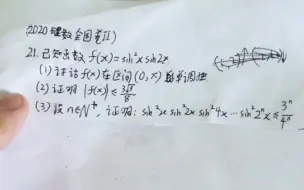 (2020 理数全国卷II)
21. 已知函数 f(x)=sin²x sin2x
(1) 讨论 f(x) 在区间(0,π)的单调性
(2) 证明 |f(x)| ≤ 3√3/8
(3) 设 n∈N*, 证明: sin²x sin²2x sin²4x … sin²2ⁿx ≤ 3ⁿ/4ⁿ